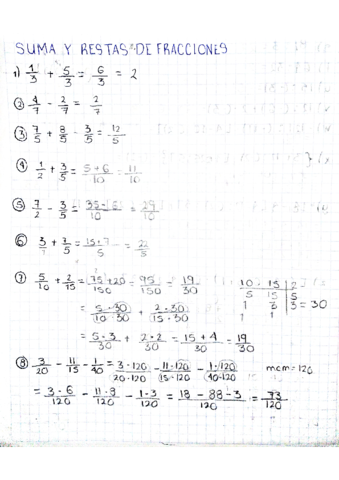 SUMA Y RESTAS DE FRACCIONES
1) 1/3 + 5/3 = 6/3 = 2
② 4/7 - 2/7 = 2/7
③ 7/5 + 8/5 - 3/5 = 12/5
④ 1/2 + 3/5 = 5+6/10 = 11/10
⑤ 7/2 - 3/5 = 35-6/10 = 29/10
⑥ 3/1 + 7/5 = 15+7/5 = 22/5
⑦ 5/10 + 2/15 = 75+20/150 = 95/150 = 19/30
10 - 15 | 2
5 15 | 5
1 3 | 3 = 30
1 1
= 5·30/10·30 + 2·30/15·30
= 5·3/30 + 2·2/30 = 15+4/30 = 19/30
⑧ 3/20 - 11/15 - 1/40 = 3·120/20·120 - 11·120/15·120 - 1·120/40·120 mcm = 120
= 3·6/120 - 11·8/120 - 1·3/120 = 18-88-3/120 = 73/120